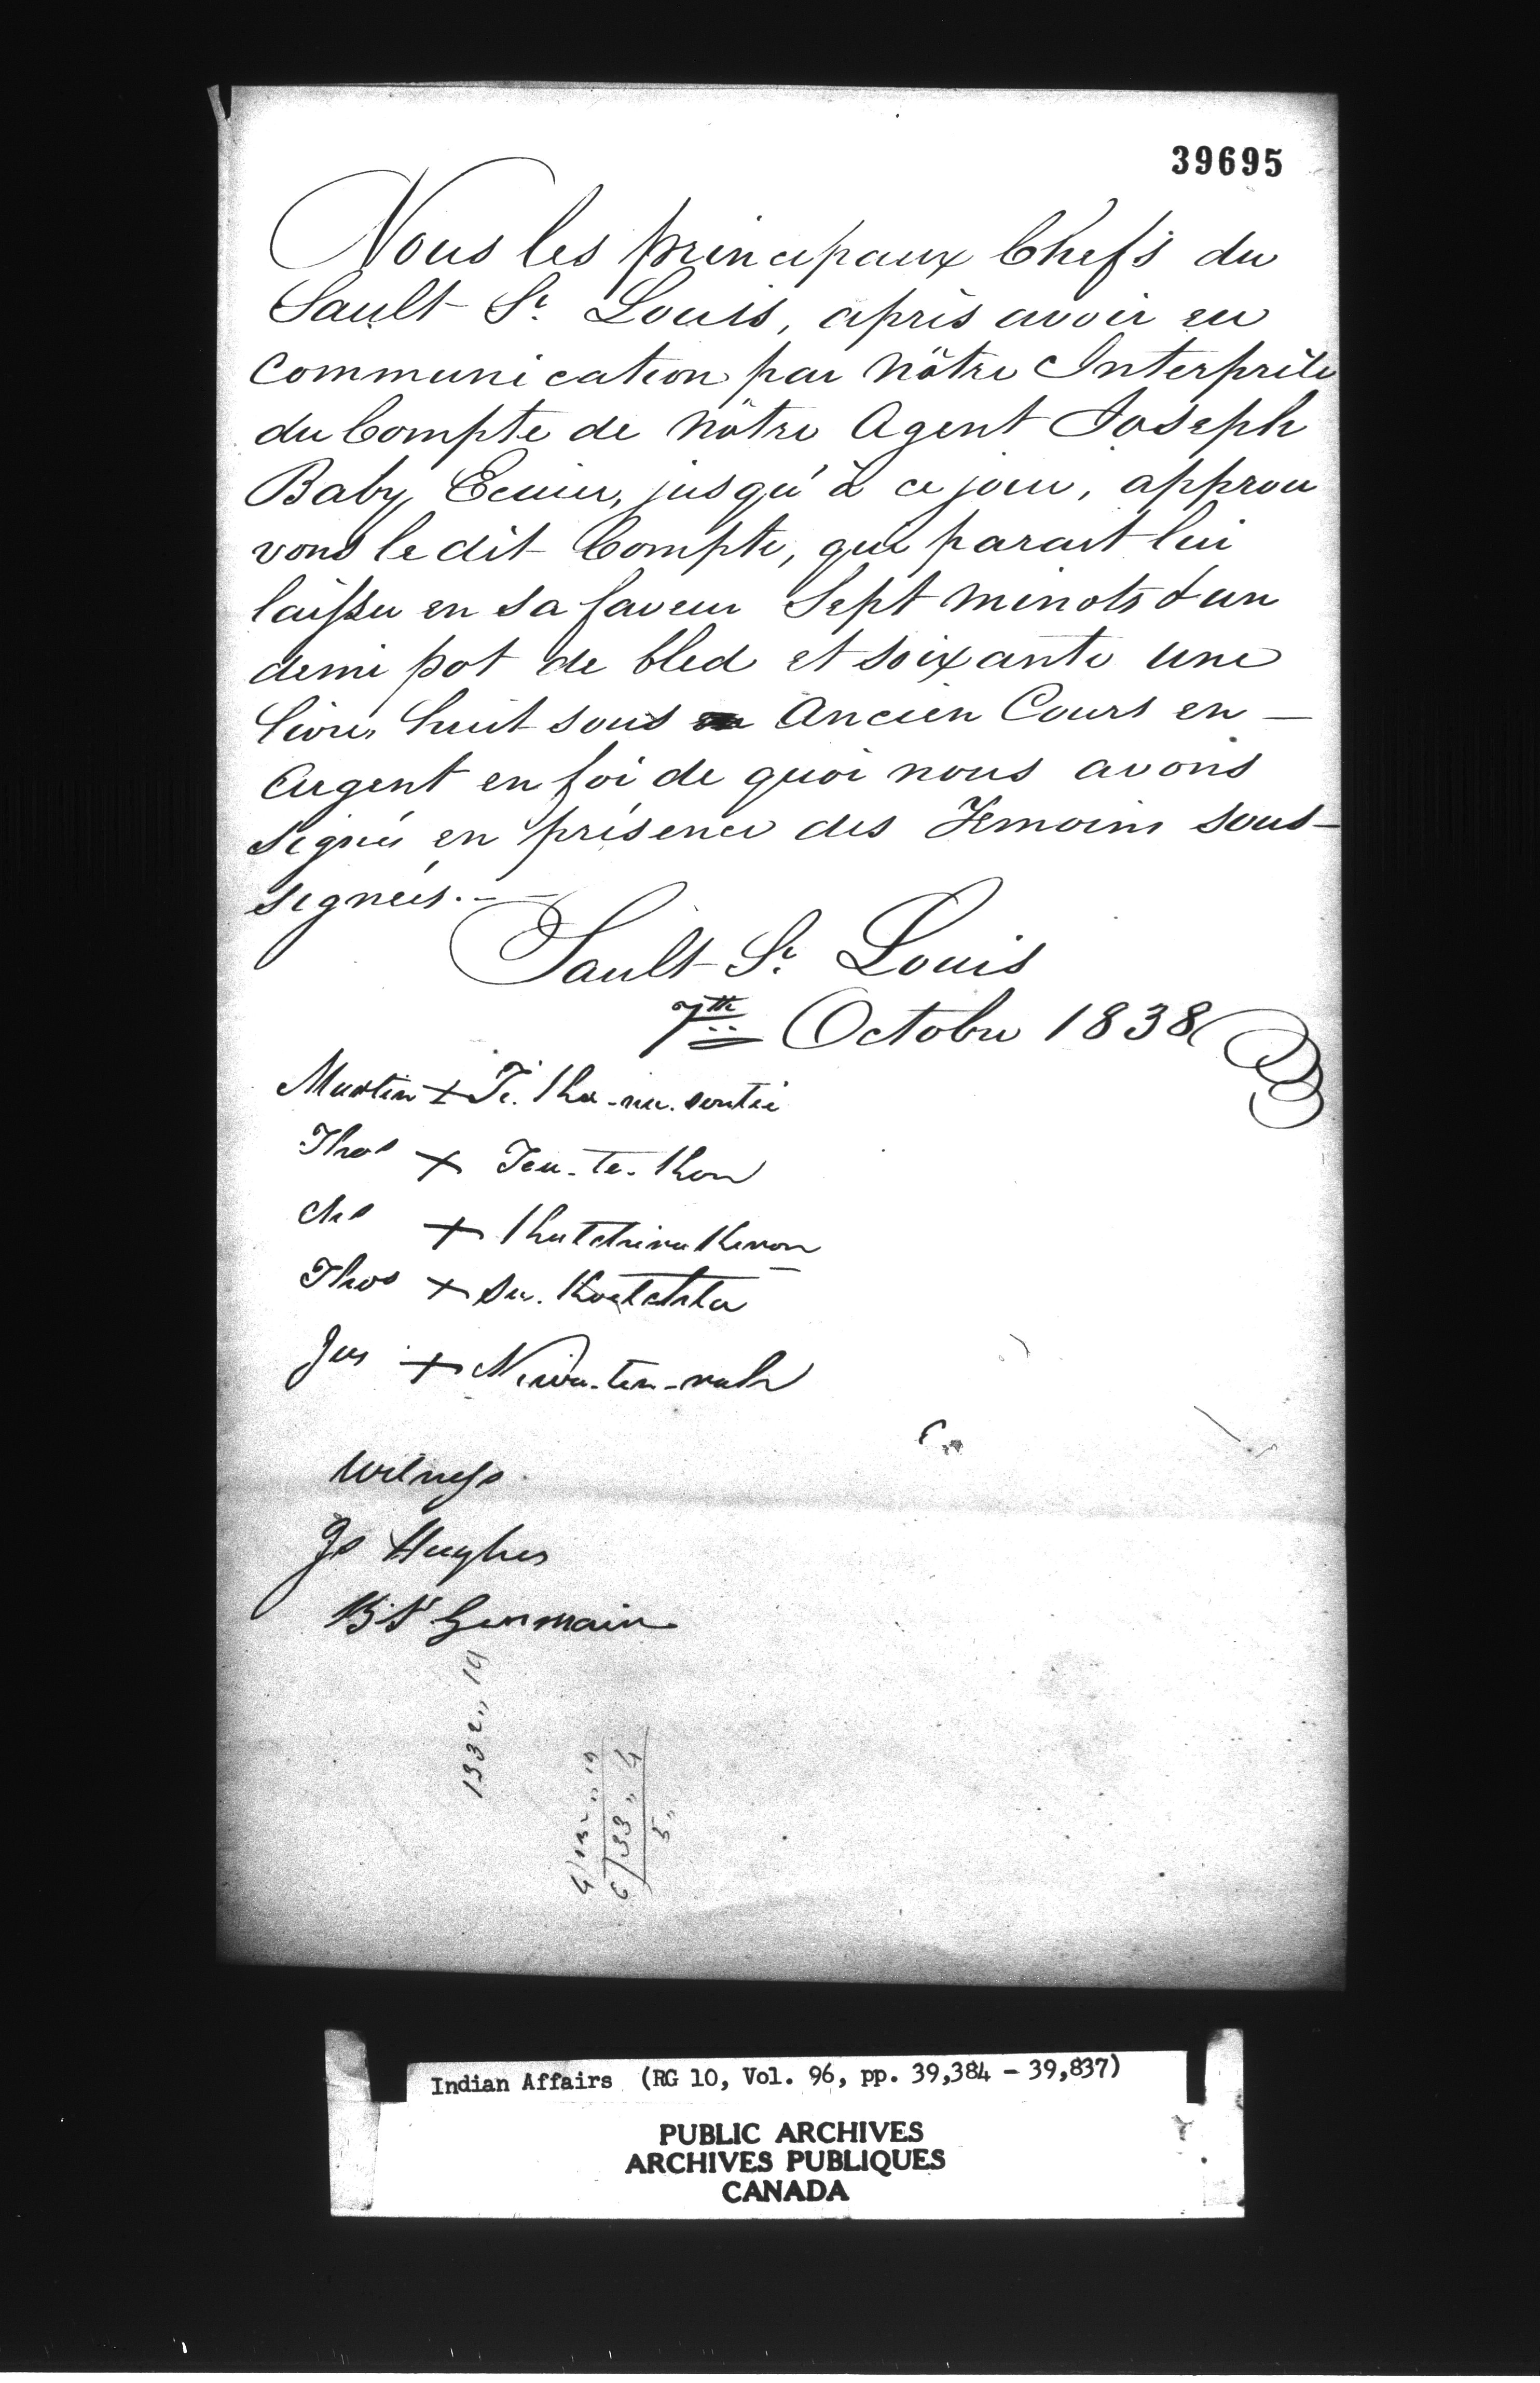 39695
Nous les principaux Chefs du
Sault St. Louis, après avoir eu
Communication par nôtre Interprète
du Compte de nôtre Agent Joseph
Baby Ecuier, jusqu'à ce jour, approu
vons le dit Compte, qui parait lui
laisser en sa faveur Sept minots & un
demi pot de bled et soixante une
livres huit sous Ancien Cours en —
Argent en foi de quoi nous avons
signés en présence des Temoins sous-
signées. — —
Sault St. Louis
7th Octobre 1838
Martin +
Thos + Teu-te-Kon
Chs +
Thos +
Jas +
Witness
Js Hughes
B St Germain
1332,, 19
33,, 4
5,,
Indian Affairs (RG 10, Vol. 96, pp. 39,384 - 39,837)
PUBLIC ARCHIVES
ARCHIVES PUBLIQUES
CANADA